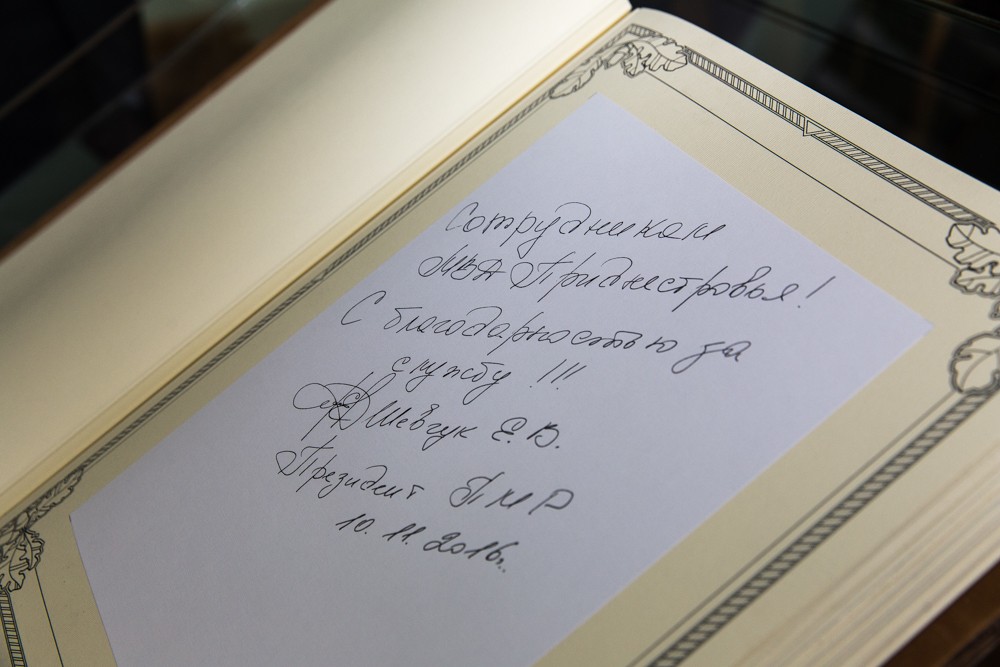 Сотрудникам
МВД Приднестровья!
С благодарностью за
службу!!!
Шевчук Е.В.
Президент ПМР
10.11.2016г.